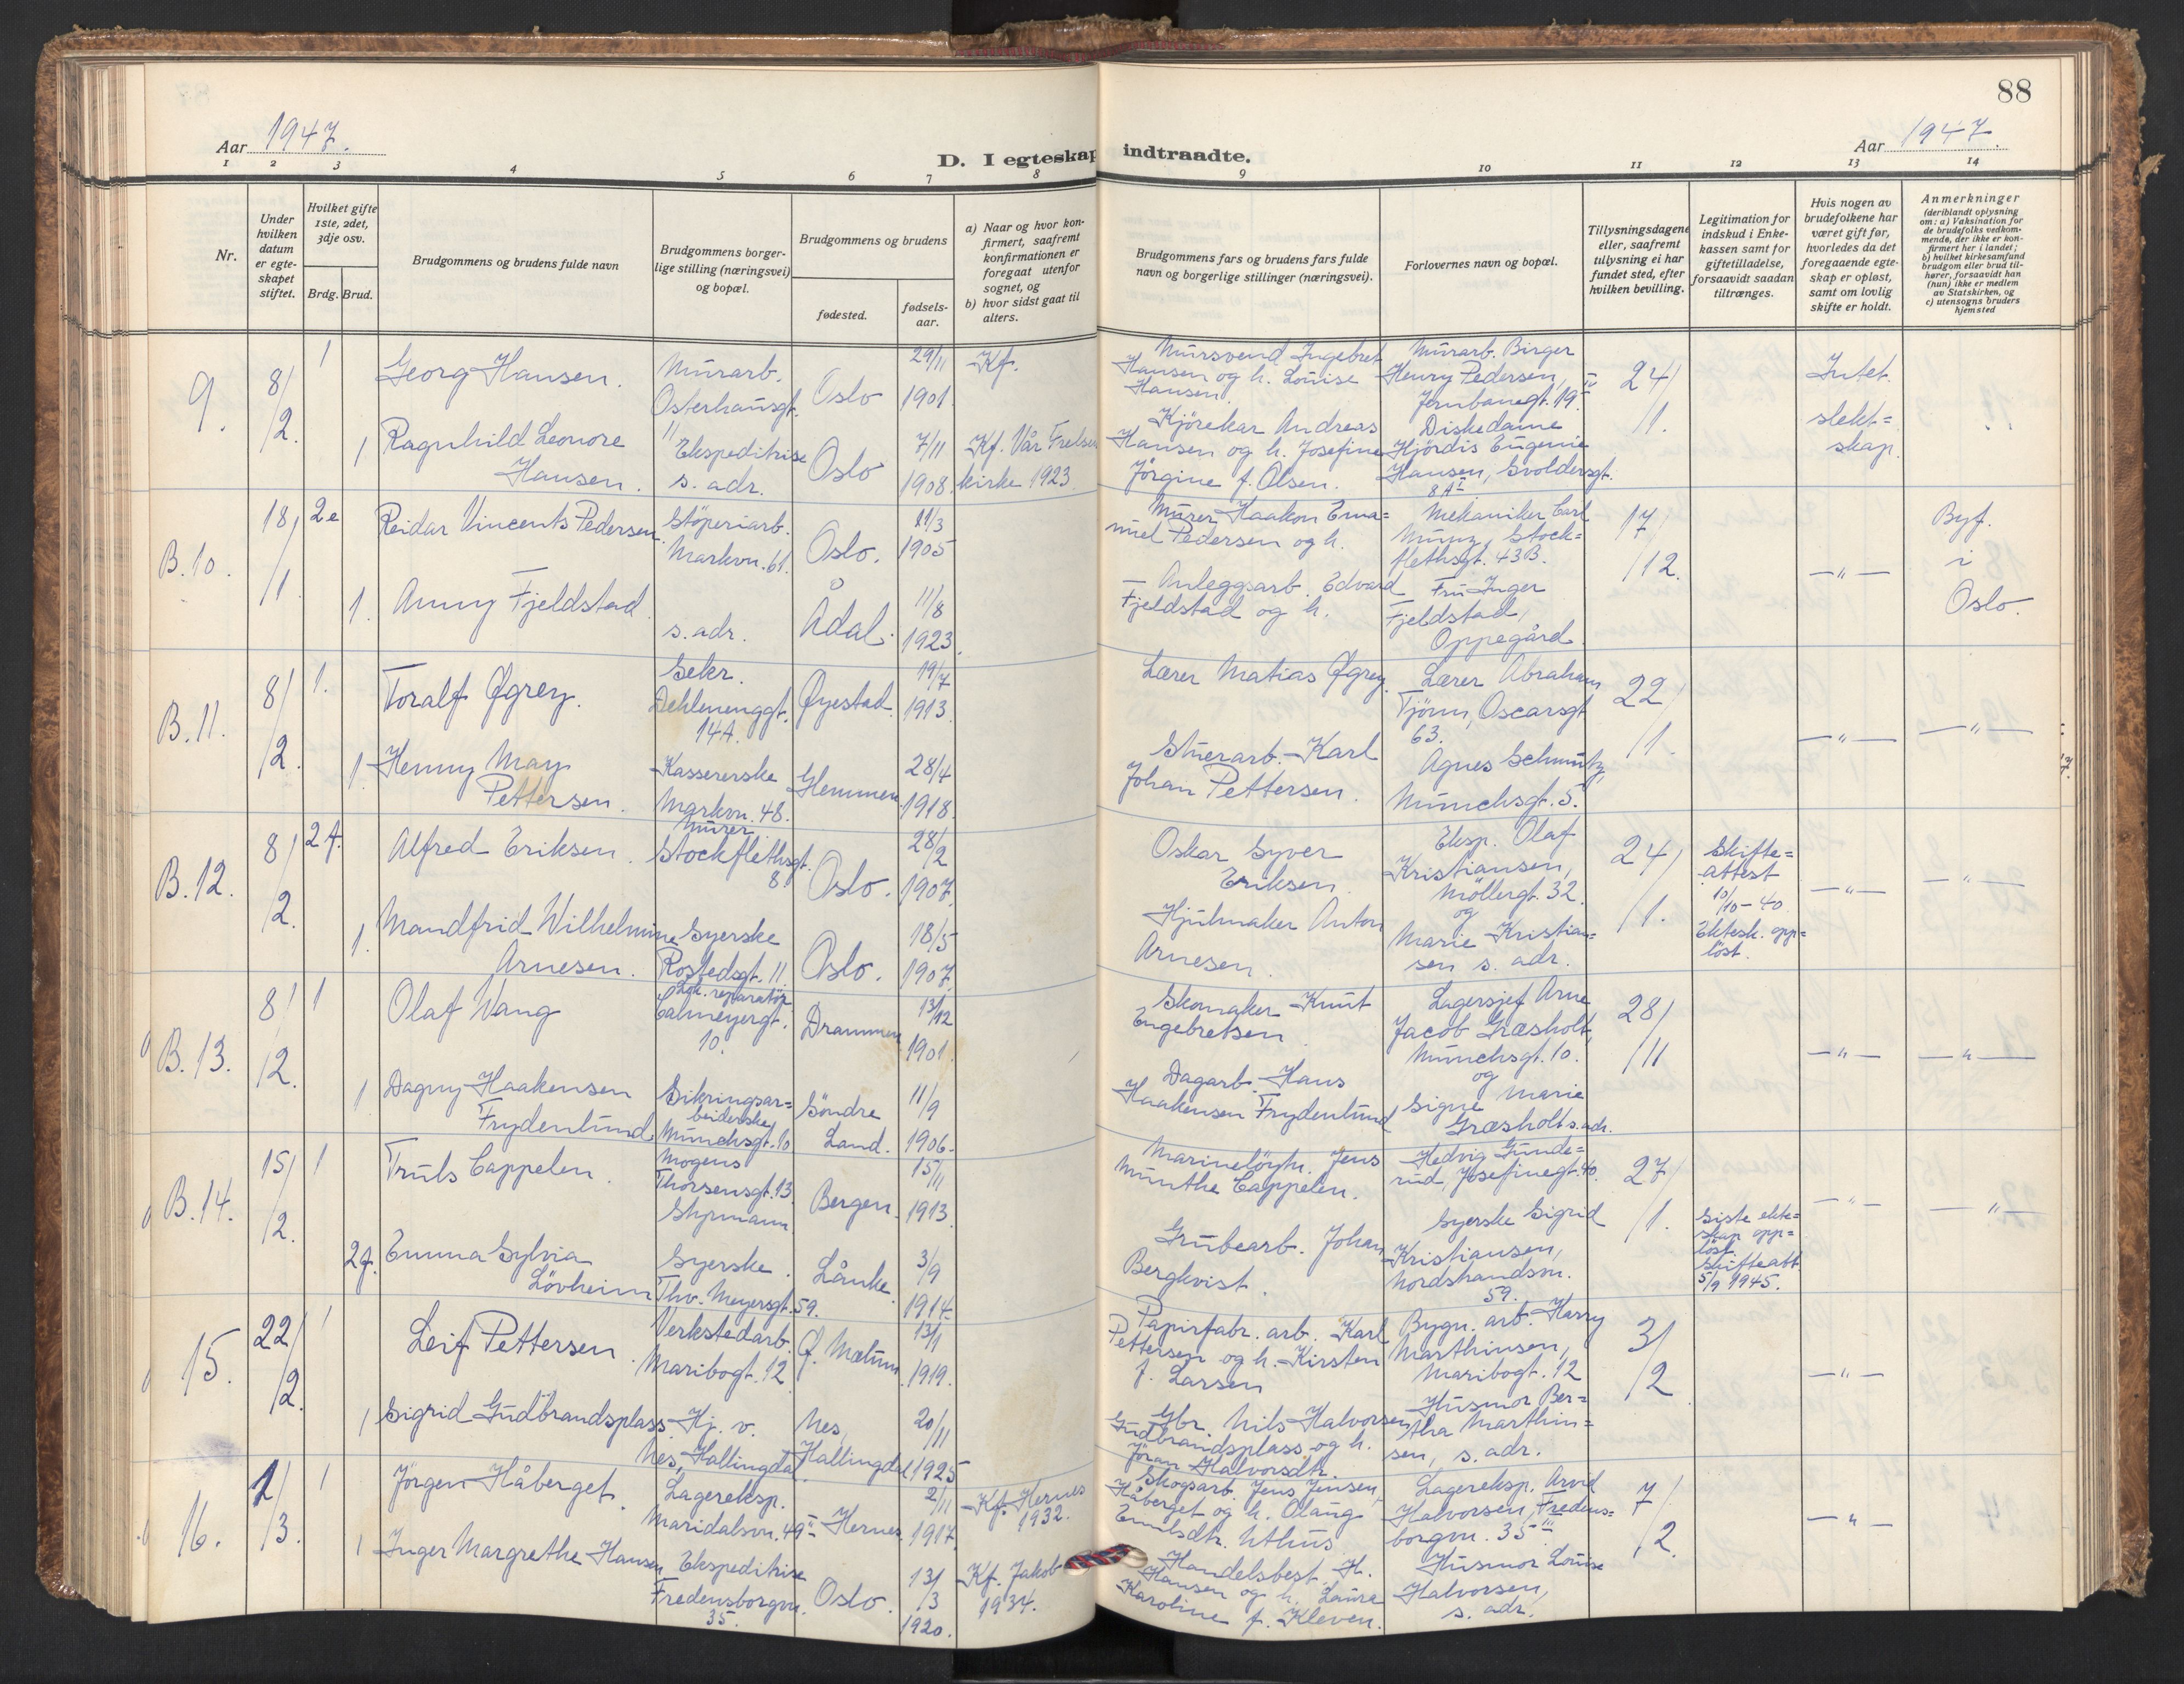 88
Aar 1947.
D. I egteskap indtraadte.
Aar 1947.
1 2 3 4 5 6 7 8 9 10 11 12 13 14
Nr.
Under hvilken datum er egteskapet stiftet.
Hvilket gifte 1ste, 2det, 3dje osv.
Brdg. Brud.
Brudgommens og brudens fulde navn
Brudgommens borgerlige stilling (næringsvei) og bopæl.
Brudgommens og brudens
fødested.
fødselsaar.
a) Naar og hvor konfirmert, saafremt konfirmationen er foregaat utenfor sognet, og
b) hvor sidst gaat til alters.
Brudgommens fars og brudens fars fulde navn og borgerlige stillinger (næringsvei).
Forlovernes navn og bopæl.
Tillysningsdagene eller, saafremt tillysning ei har fundet sted, efter hvilken bevilling.
Legitimation for indskud i Enkekassen samt for giftetilladelse, forsaavidt saadan tiltrænges.
Hvis nogen av brudefolkene har været gift før, hvorledes da det foregaaende egteskap er opløst, samt om lovlig skifte er holdt.
Anmerkninger
(deriblandt oplysning om: a) Vaksination for de brudefolks vedkommende, der ikke er konfirmert her i landet;
b) hvilket kirkesamfund brudgom eller brud tilhører, forsaavidt han (hun) ikke er medlem av Statskirken, og
c) utensogns bruders hjemsted
9. 8/2. 1 Georg Hansen. Murarb. Osterhausgt. 11 Oslo 29/11 1901. Kf.
Mursvend Ingebret Hansen og h. Louise Hansen. Murarb. Birger Henry Pedersen, Jernbanegt. 19 IV 24/1. Intet slektskap.
1 Ragnhild Leonore Hansen. Ekspeditrise s. adr. Oslo 7/11 1908. Kf. Vår Frelser kirke 1923.
Kjørekar Andreas Hansen og h. Josefine Jörgine f. Olsen. Diskedame Hjördis Eugenie Hansen, Svoldersgt. 8 A I
B.10. 18/1. 2e Reidar Vincents Pedersen. Støperiarb. Markvn. 61. Oslo. 21/3 1905
Murer Haakon Emanuel Pedersen og h. Mekaniker Carl Munz, Stockflethsgt. 43B. 17/12. —"— Byf. i Oslo.
1. Anny Fjeldstad. s. adr. Ådal. 11/8 1923.
Anleggsarb. Edvard Fjeldstad og h. Fru Inger Fjeldstad, Oppegård.
B.11. 8/2. 1. Toralf Øgrey. Sekr. Dehlenenggt. 14A. Øyestad. 19/7 1913.
Lærer Matias Øgrey. Lærer Abraham Tjörn, Oscarsgt 63. 22/1. —"— —"—
1 Henny May Pettersen. Kassererske Markvn. 48. Glemmen. 28/4 1918.
Stuerarb. Karl Johan Pettersen. Agnes Schmutz, Munchsgt. 5.
B.12. 8/2. 2f. Alfred Eriksen. Murer Stockflethsgt. 8. Oslo. 28/2 1907.
Oskar Syver Eriksen. Eksp. Olaf Kristiansen, Möllergt. 32. og 24/1. Skifteattest 10/10-40 Ektesk. oppløst. —"— —"—
1. Mandfrid Wilhelmine Arnesen. Syerske Rostedsgt. 11. Oslo. 18/5 1907.
Hjulmaker Anton Arnesen. Marie Kristiansen s. adr.
B.13. 8/2. 1 Olaf Vang reparatør Calmeyergt. 10. Drammen 13/12 1901.
Skomaker Knut Engebretsen Lagersjef Arne Jacob Græsholt, Munchsgt. 10. og 28/11 —"— —"—
1 Dagny Haakensen Frydenlund. Sikringsarbeiderske Munchsgt. 10 Söndre Land. 11/9 1906.
Dagarb. Hans Haakensen Frydenlund Signe Marie Græsholt s. adr.
B.14. 15/2. 1 Truls Cappelen. Mogens Thorsensgt. 13 Styrmann Bergen. 15/11 1913.
Marineløytn. Jens Munthe Cappelen. Hedvig Gunderud, Josefinegt. 40. 27/1. —"— —"—
2g. Emma Sylvia Lövheim Syerske. Thv. Meyersgt. 59. Lånke. 3/9 1914.
Grubearb. Johan Bergkvist. Syerske Sigrid Kristiansen, Nordstrandsvn. 59. Siste ekteskap oppløst. Skifteatt 5/9 1945.
15. 22/2. 1 Leif Pettersen. Verkstedarb. Maribogt. 12 Ø. Mælum. 13/1 1919.
Papirfabr. arb. Karl Pettersen og h. Kirsten f. Larsen Bygn. arb. Harry Marthinsen, Maribogt. 12 3/2 —"—
1 Sigrid Gudbrandsplass. Hj. v. Nes, Hallingdal. Nes, Hallingdal 20/11 1925
Gbr. Nils Halvorsen Gudbrandsplass og h. Jöran Halvorsdtr. Husmor Bertha Marthinsen, s. adr.
16. 1/3. 1 Jörgen Håberget. Lagereksp. Maridalsvn. 49 II Hernes. 2/11 1917. Kf. Hernes 1932.
Skogsarb. Jens Jensen Håberget og h. Olaug Emilsdtr. Uthus. Lagereksp. Arvid Halvorsen, Fredensborgvn. 35 III 7/2. —"—
1 Inger Margrethe Hansen Ekspeditrise Fredensborgvn. 35. Oslo. 13/3 1920. Kf. Jakob 1934.
Handelsbest. H. Hansen og h. Laura Karoline f. Kleven. Husmor Louise Halvorsen, s. adr.